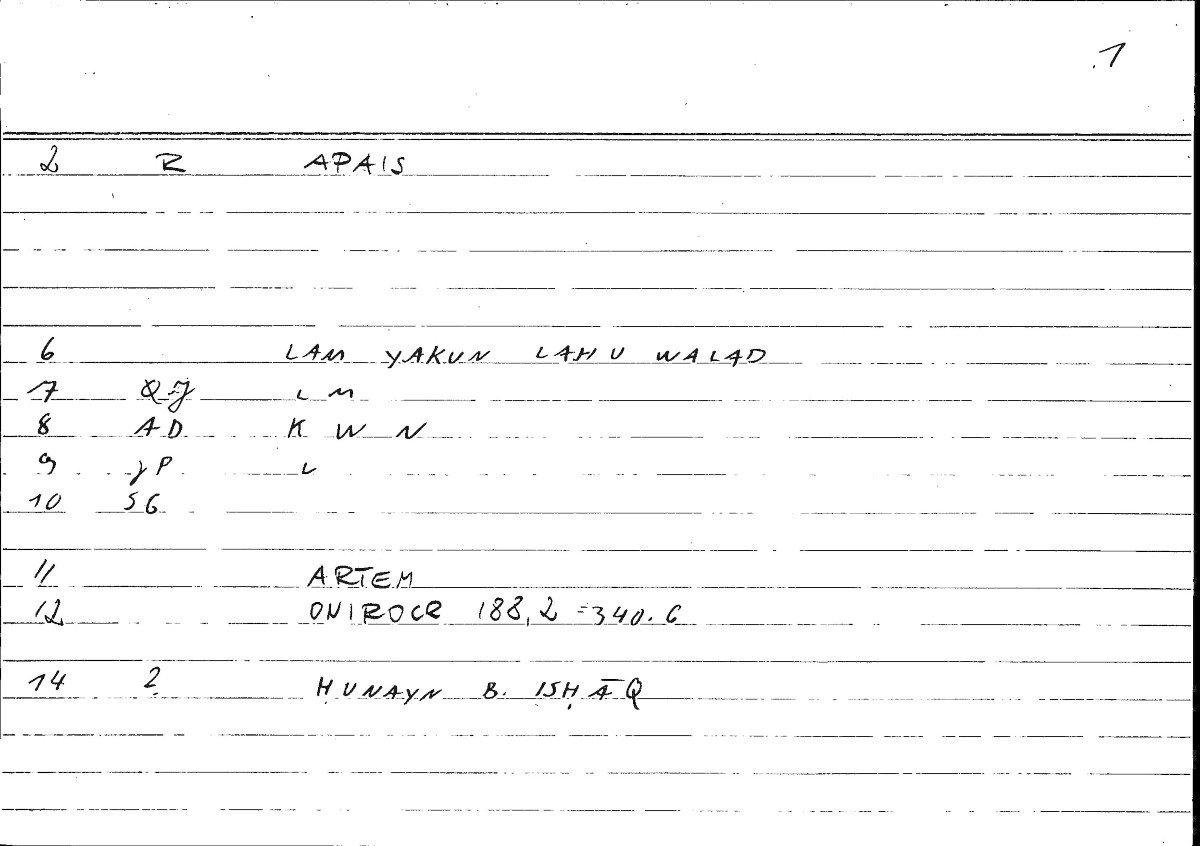 1
2 R APAIS
6 LAM YAKUN LAHU WALAD
7 QJ L M
8 AD K W N
9 γP L
10 SG
11 ARTEM
12 ONIROCR 188,2 =340.6
14 2 ḤUNAYN B. ISḤĀQ